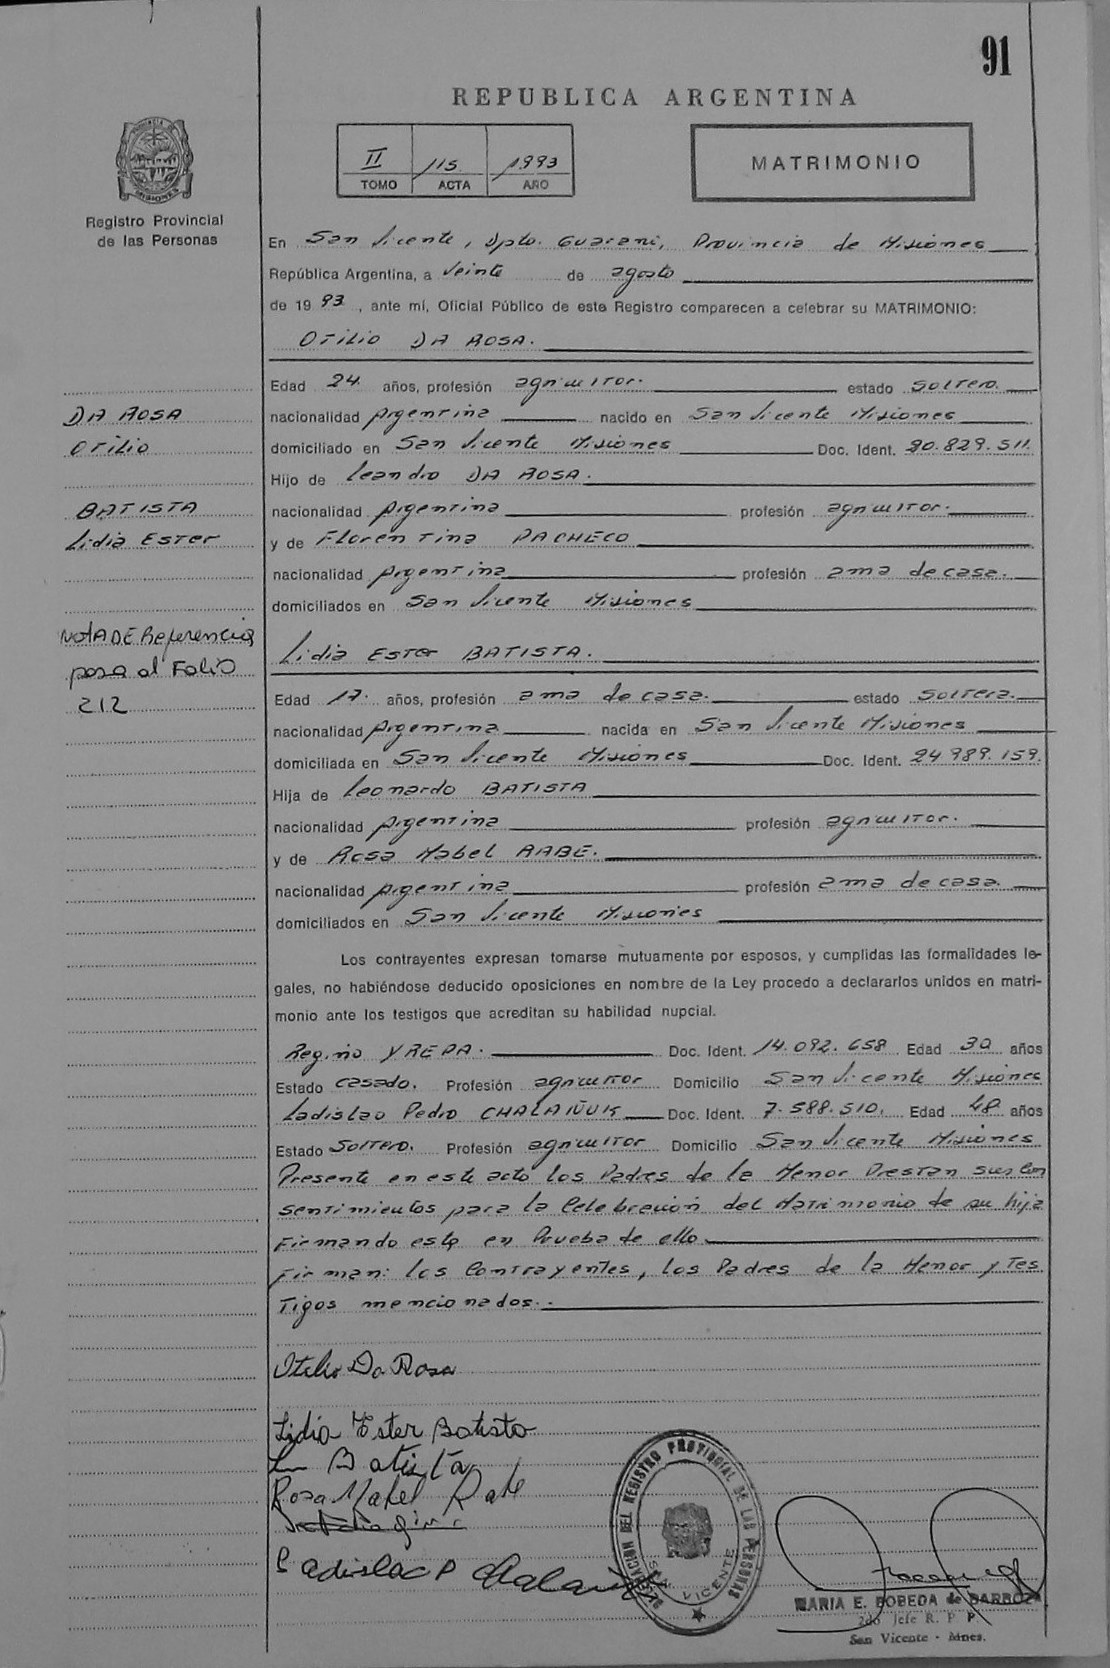 91
REPUBLICA ARGENTINA
II 115 1993
TOMO ACTA AÑO
MATRIMONIO
Registro Provincial
de las Personas
En San Vicente, Dpto. Guarani, Provincia de Misiones
República Argentina, a Veinte de agosto
de 1993, ante mi, Oficial Público de este Registro comparecen a celebrar su MATRIMONIO:
OTILIO DA ROSA.
Edad 24. años, profesión agricultor. estado soltero.
DA ROSA
nacionalidad Argentina nacido en San Vicente Misiones
OTILIO
domiciliado en San Vicente Misiones Doc. Ident. 20.829.511.
Hijo de Leandro DA ROSA.
BATISTA
nacionalidad Argentina profesión agricultor.
Lidia Ester
y de Florentina PACHECO
nacionalidad Argentina profesión ama de casa.
domiciliados en San Vicente Misiones
NOTA DE Referencia
pasa al Folio
212
Lidia Ester BATISTA.
Edad 17. años, profesión ama de casa. estado soltera.
nacionalidad Argentina nacida en San Vicente Misiones
domiciliada en San Vicente Misiones Doc. Ident. 24.989.159.
Hija de Leonardo BATISTA
nacionalidad Argentina profesión agricultor.
y de Rosa Mabel RABE.
nacionalidad Argentina profesión ama de casa.
domiciliados en San Vicente Misiones
Los contrayentes expresan tomarse mutuamente por esposos, y cumplidas las formalidades le-
gales, no habiéndose deducido oposiciones en nombre de la Ley procedo a declararlos unidos en matri-
monio ante los testigos que acreditan su habilidad nupcial.
Regino YREPA. Doc. Ident. 14.092.658 Edad 30 años
Estado casado. Profesión agricultor Domicilio San Vicente Misiones
Ladislao Pedro CHALAÑUK Doc. Ident. 7.588.510. Edad 48 años
Estado Soltero. Profesión agricultor Domicilio San Vicente Misiones
Presente en este acto los Padres de la Menor Prestan sus Con
sentimientos para la Celebración del Matrimonio de su hija
Firmando esta en Prueba de ello
Firman: los Contrayentes, los Padres de la Menor y Tes
Tigos mencionados.
Otilio Da Rosa
Lidia Ester Batista
Batista
Rosa Mabel Rabe
Ladislao P Chalañuk
DELEGACION DEL REGISTRO PROVINCIAL DE LAS PERSONAS
SAN VICENTE
MARIA E. BOBEDA de BARBOZA
2do Jefe R. P. P.
San Vicente - Mnes.